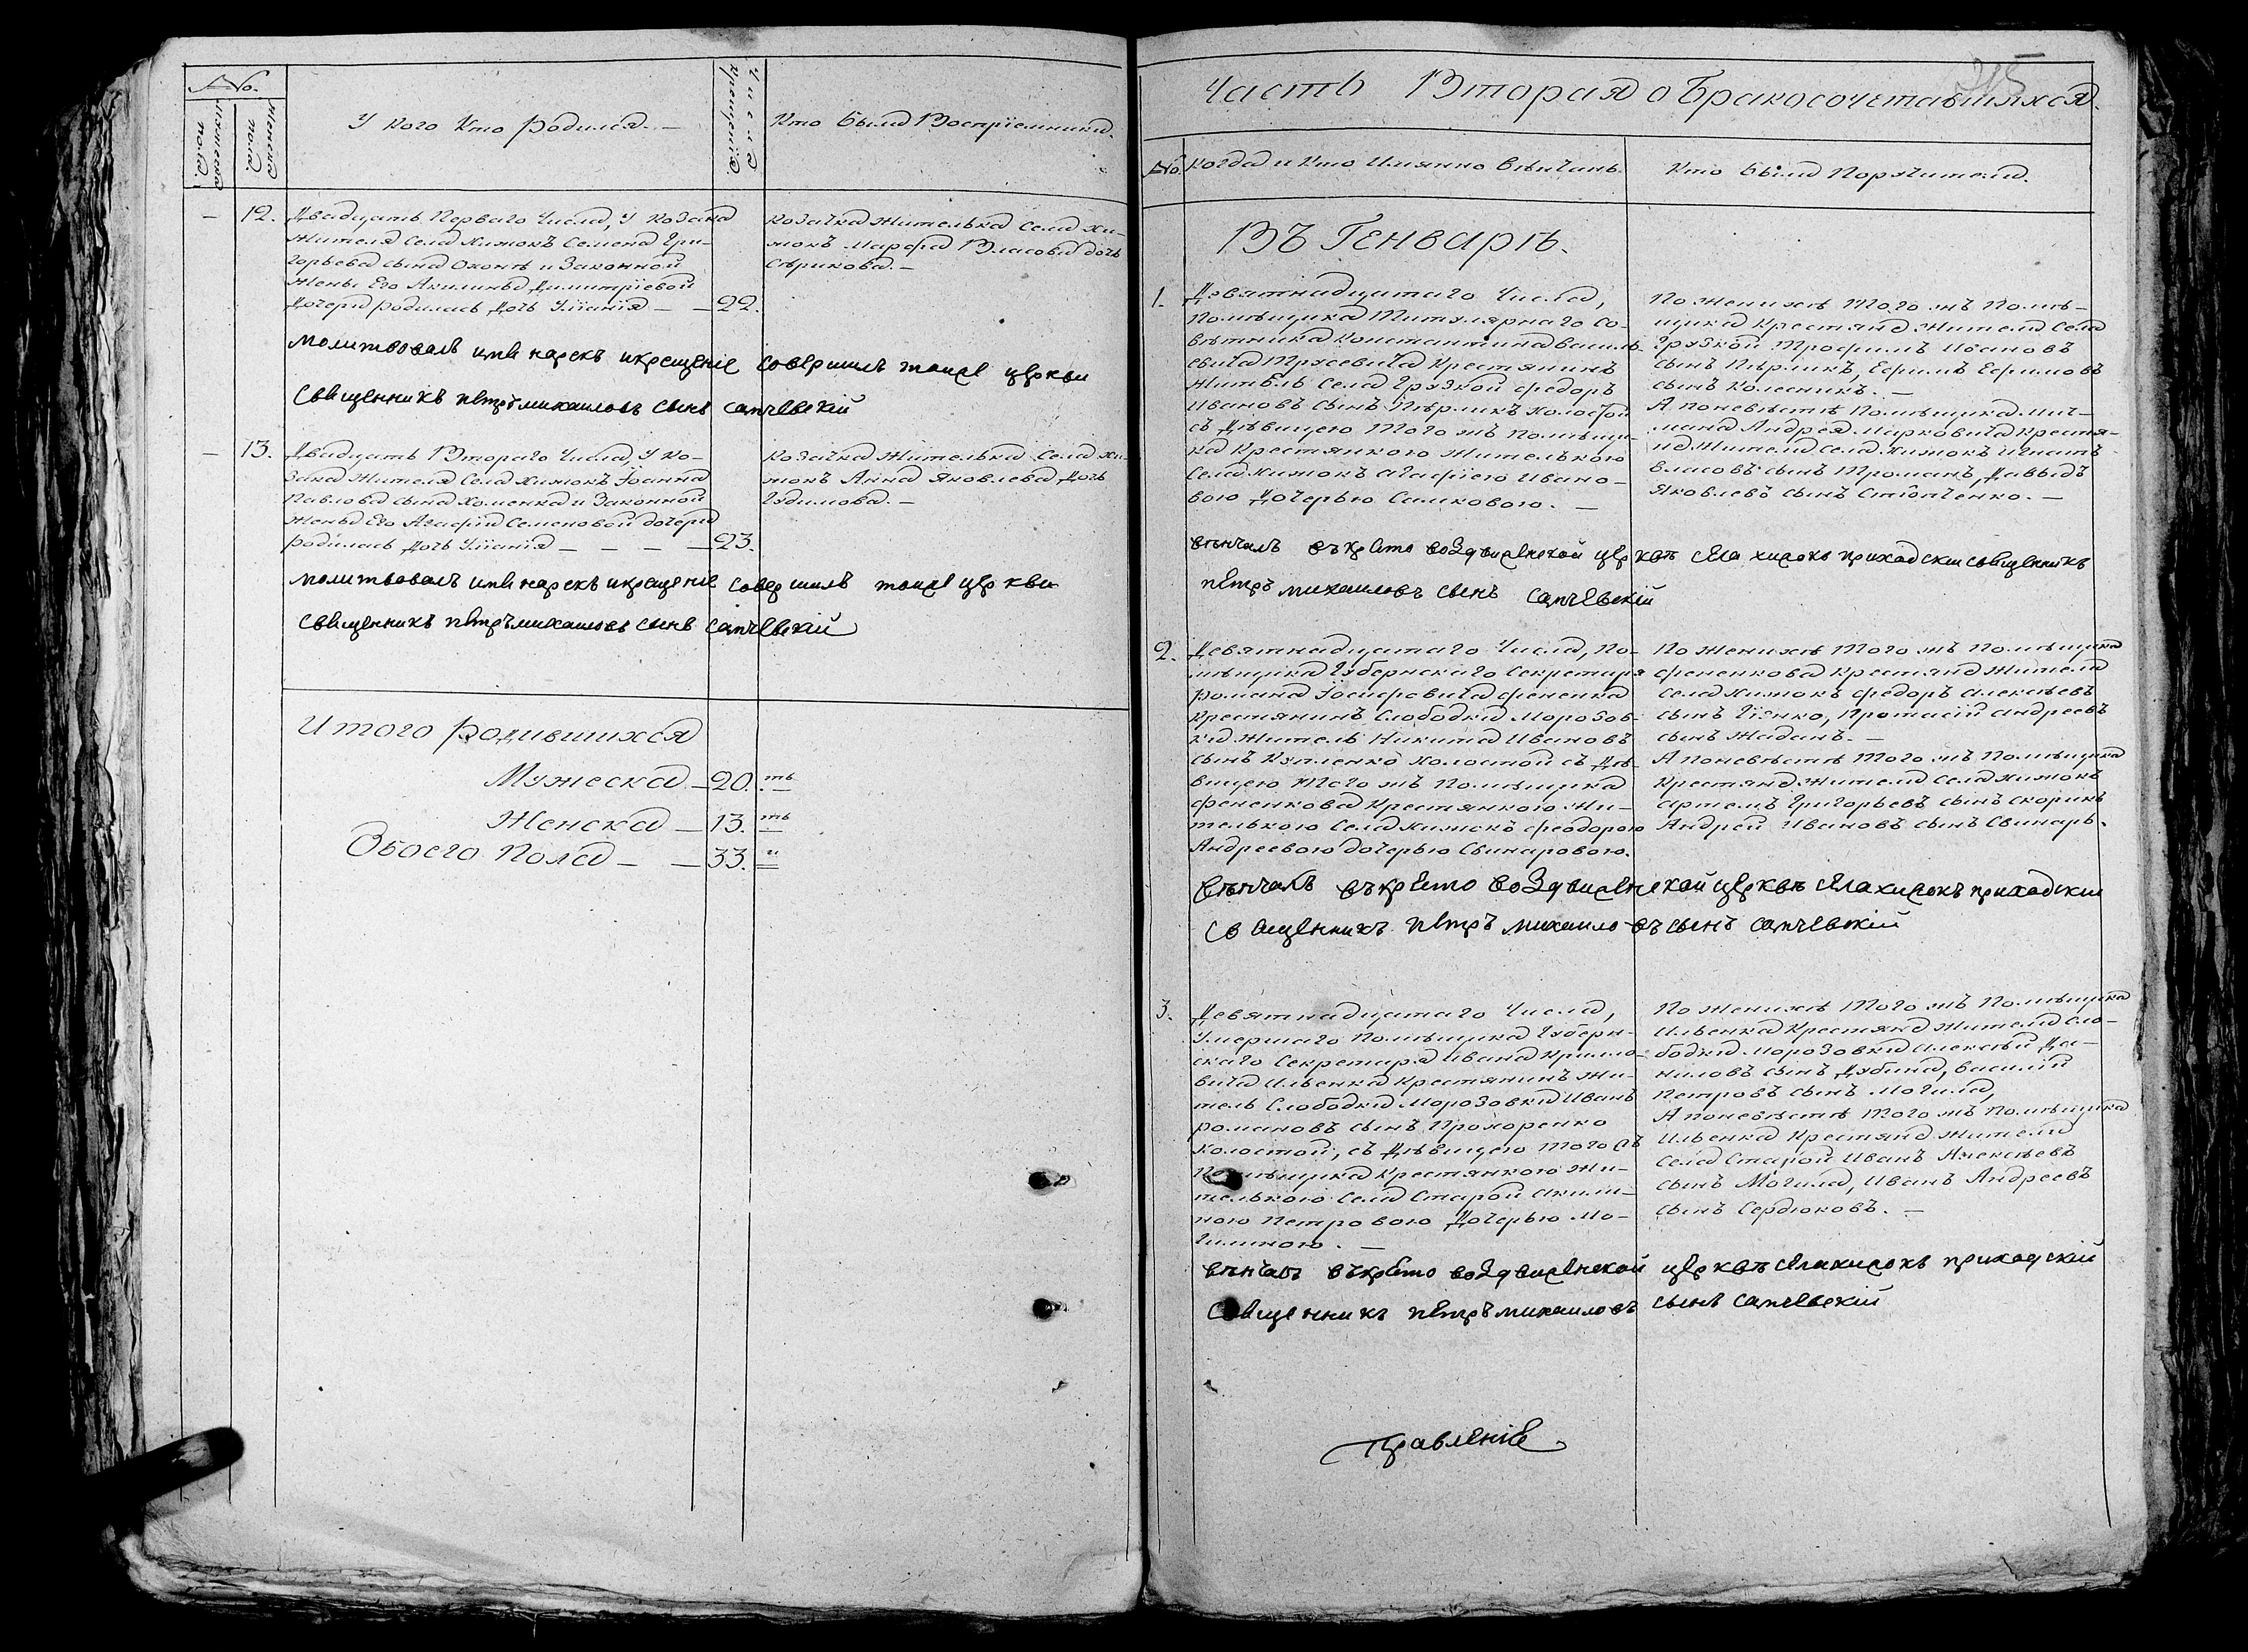 №
Мужеска пола.
Женска пола.
У кого Кто Родился. —
Числа крещенія
Кто были Воспріемники.
— 12. Двадцать Перваго Числа, У козака
Жителя села Хижокъ Семена Гри-
горьева сына и Законной
Жены Его Акилины Димитріевой
Дочери родилась Дочь Уліанія — — 22.
козачка жителька села Хи-
жокъ Марфа Власова дочь
молитвовалъ имя нарекъ и крещеніе совершилъ тоиже церкви
священникъ петръ михаиловъ сынъ
— 13. Двадцать Втораго Числа, У ко-
зака Жителя Села Хижокъ Іоанна
Павлова сына Хоменка и Законной
Жены Его Агафіи Семеновой дочери
родилась дочь Уліанія — — — — 23.
козачка Жителька Села Хи-
жокъ Анна Яковлева Дочь
молитвовалъ имя нарекъ и крещеніе совершилъ тоиже церкви
священникъ петръ михаиловъ сынъ
Итого Родившихся
Мужеска — 20. ть
Женска — 13. ть
Обоего Пола — — 33. и
315
Часть Вторая о Бракосочетавшихся.
№. когда и Кто Имянно Вѣнчанъ.
Кто были Поручители.
Въ Генварѣ.
1. Девятнадцатаго Числа,
Помѣщика Титулярнаго Со-
вѣтника Константина Василь-
евича Трусевича Крестянинъ
Житель Села Грузкой Федоръ
Ивановъ Сынъ холостой
съ Дѣвицею Того жъ Помѣщи-
ка Крестянкою Жителькою
Села Хижокъ Агафіею Ивано-
вою Дочерью Салковою. —
По Женихѣ Того жъ Помѣ-
щика Крестяне Жители Села
Грузкой Трофимъ Ивановъ
сынъ Ефимъ Ефимовъ
сынъ Колесникъ. —
А поневѣстѣ Помѣщика Мич-
мана Андрея Марковича Крестя-
не Жители Села Хижокъ Игнатъ
Власовъ сынъ Давыдъ
Яковлевъ сынъ —
вѣнчалъ въ кресто воздвиженской церквѣ села хижокъ приходскии священникъ
петръ михаиловъ сынъ
2. Девятнадцатаго Числа, По-
мѣщика Губернскаго Секретаря
Романа Іосифовича Фененка
Крестянинъ Слободки Морозов-
ки Житель Никита Ивановъ
сынъ Купленко холостой съ Дѣ-
вицею Того жъ Помѣщика
Фененкова Крестянкою Жи-
телькою Села Хижокъ Феодорою
Андреевою дочерью Свинаровою.
По Женихѣ Того жъ Помѣщика
Фененкова Крестяне Жители
села Хижокъ Федоръ Алексѣевъ
сынъ Протасій Андреевъ
сынъ Жаданъ. —
А поневѣстѣ Того жъ Помѣщика
Крестяне Жители Села Хижокъ
Артемъ Григорьевъ сынъ Скорикъ
Андрей Ивановъ сынъ Свинарь.
вѣнчалъ въ кресто воздвиженской церквѣ села хижокъ приходскии
священникъ петръ михаиловъ сынъ
3. Девятнадцатаго Числа,
Умершаго Помѣщика Губерн-
скаго Секретаря Ивана Крилло-
вича Ильенка Крестянинъ Жи-
тель Слободки Морозовки Иванъ
романовъ сынъ Прохоренко
Холостой, съ Дѣвицею Того жъ
Помѣщика Крестянкою Жи-
телькою Села Старой Акили-
ною Петровою Дочерью Мо-
гилиною. —
По Женихѣ Того жъ Помѣщика
Ильенка Крестяне Жители Сло-
бодки Морозовки Алексѣй Да-
ниловъ сынъ Дубина, Василій
Петровъ сынъ Могила,
А поневѣстѣ Того жъ Помѣщика
Ильенка Крестяне Жители
Села Старой Иванъ Алексѣевъ
сынъ Могила, Иванъ Андреевъ
сынъ Сердюковъ. —
вѣнчалъ въ кресто воздвиженской церквѣ села хижокъ приходскій
священникъ петръ михаиловъ сынъ
правленіе